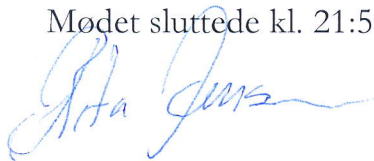 Mødet sluttede kl. 21:5
Jensen